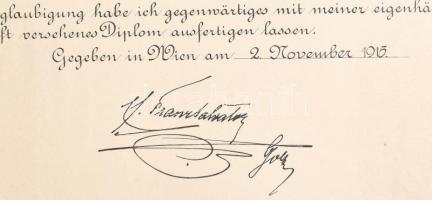 glaubigung habe ich gegenwärtiges mit meiner eigenhä
ft versehenes Diplom ausfertigen lassen.
Gegeben in Wien am 2. November 1915.
Franz Salvator